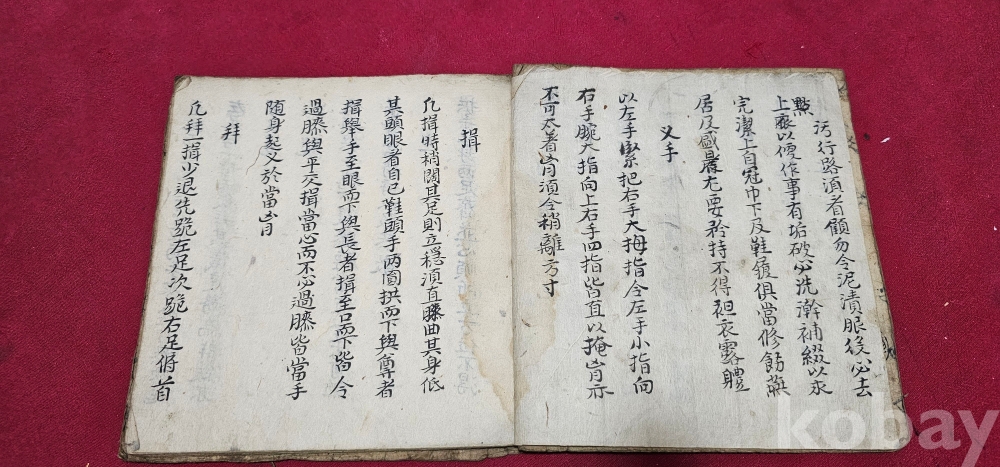 污行路須看顧勿令泥漬服後必去
點上衣以便作事有垢破必洗澣補綴以求
完潔上自冠巾下及鞋履俱當修飭燕
居及盛暑尤要矜持不得袒衣露體
叉手
以左手緊把右手大拇指令左手小指向
右手腕大指向上右手四指皆直以掩胷亦
不可太著胷須令稍離方寸
揖
凡揖時稍闊其足則立穩須直膝曲其身低
其頭眼看自己鞋頭手兩圓拱而下與尊者
揖擧手至眼而下與長者揖至口而下皆令
過膝與平交揖當心而不必過膝皆當手
隨身起叉於當胷
拜
凡拜一揖少退先跪左足次跪右足俯首
kobay